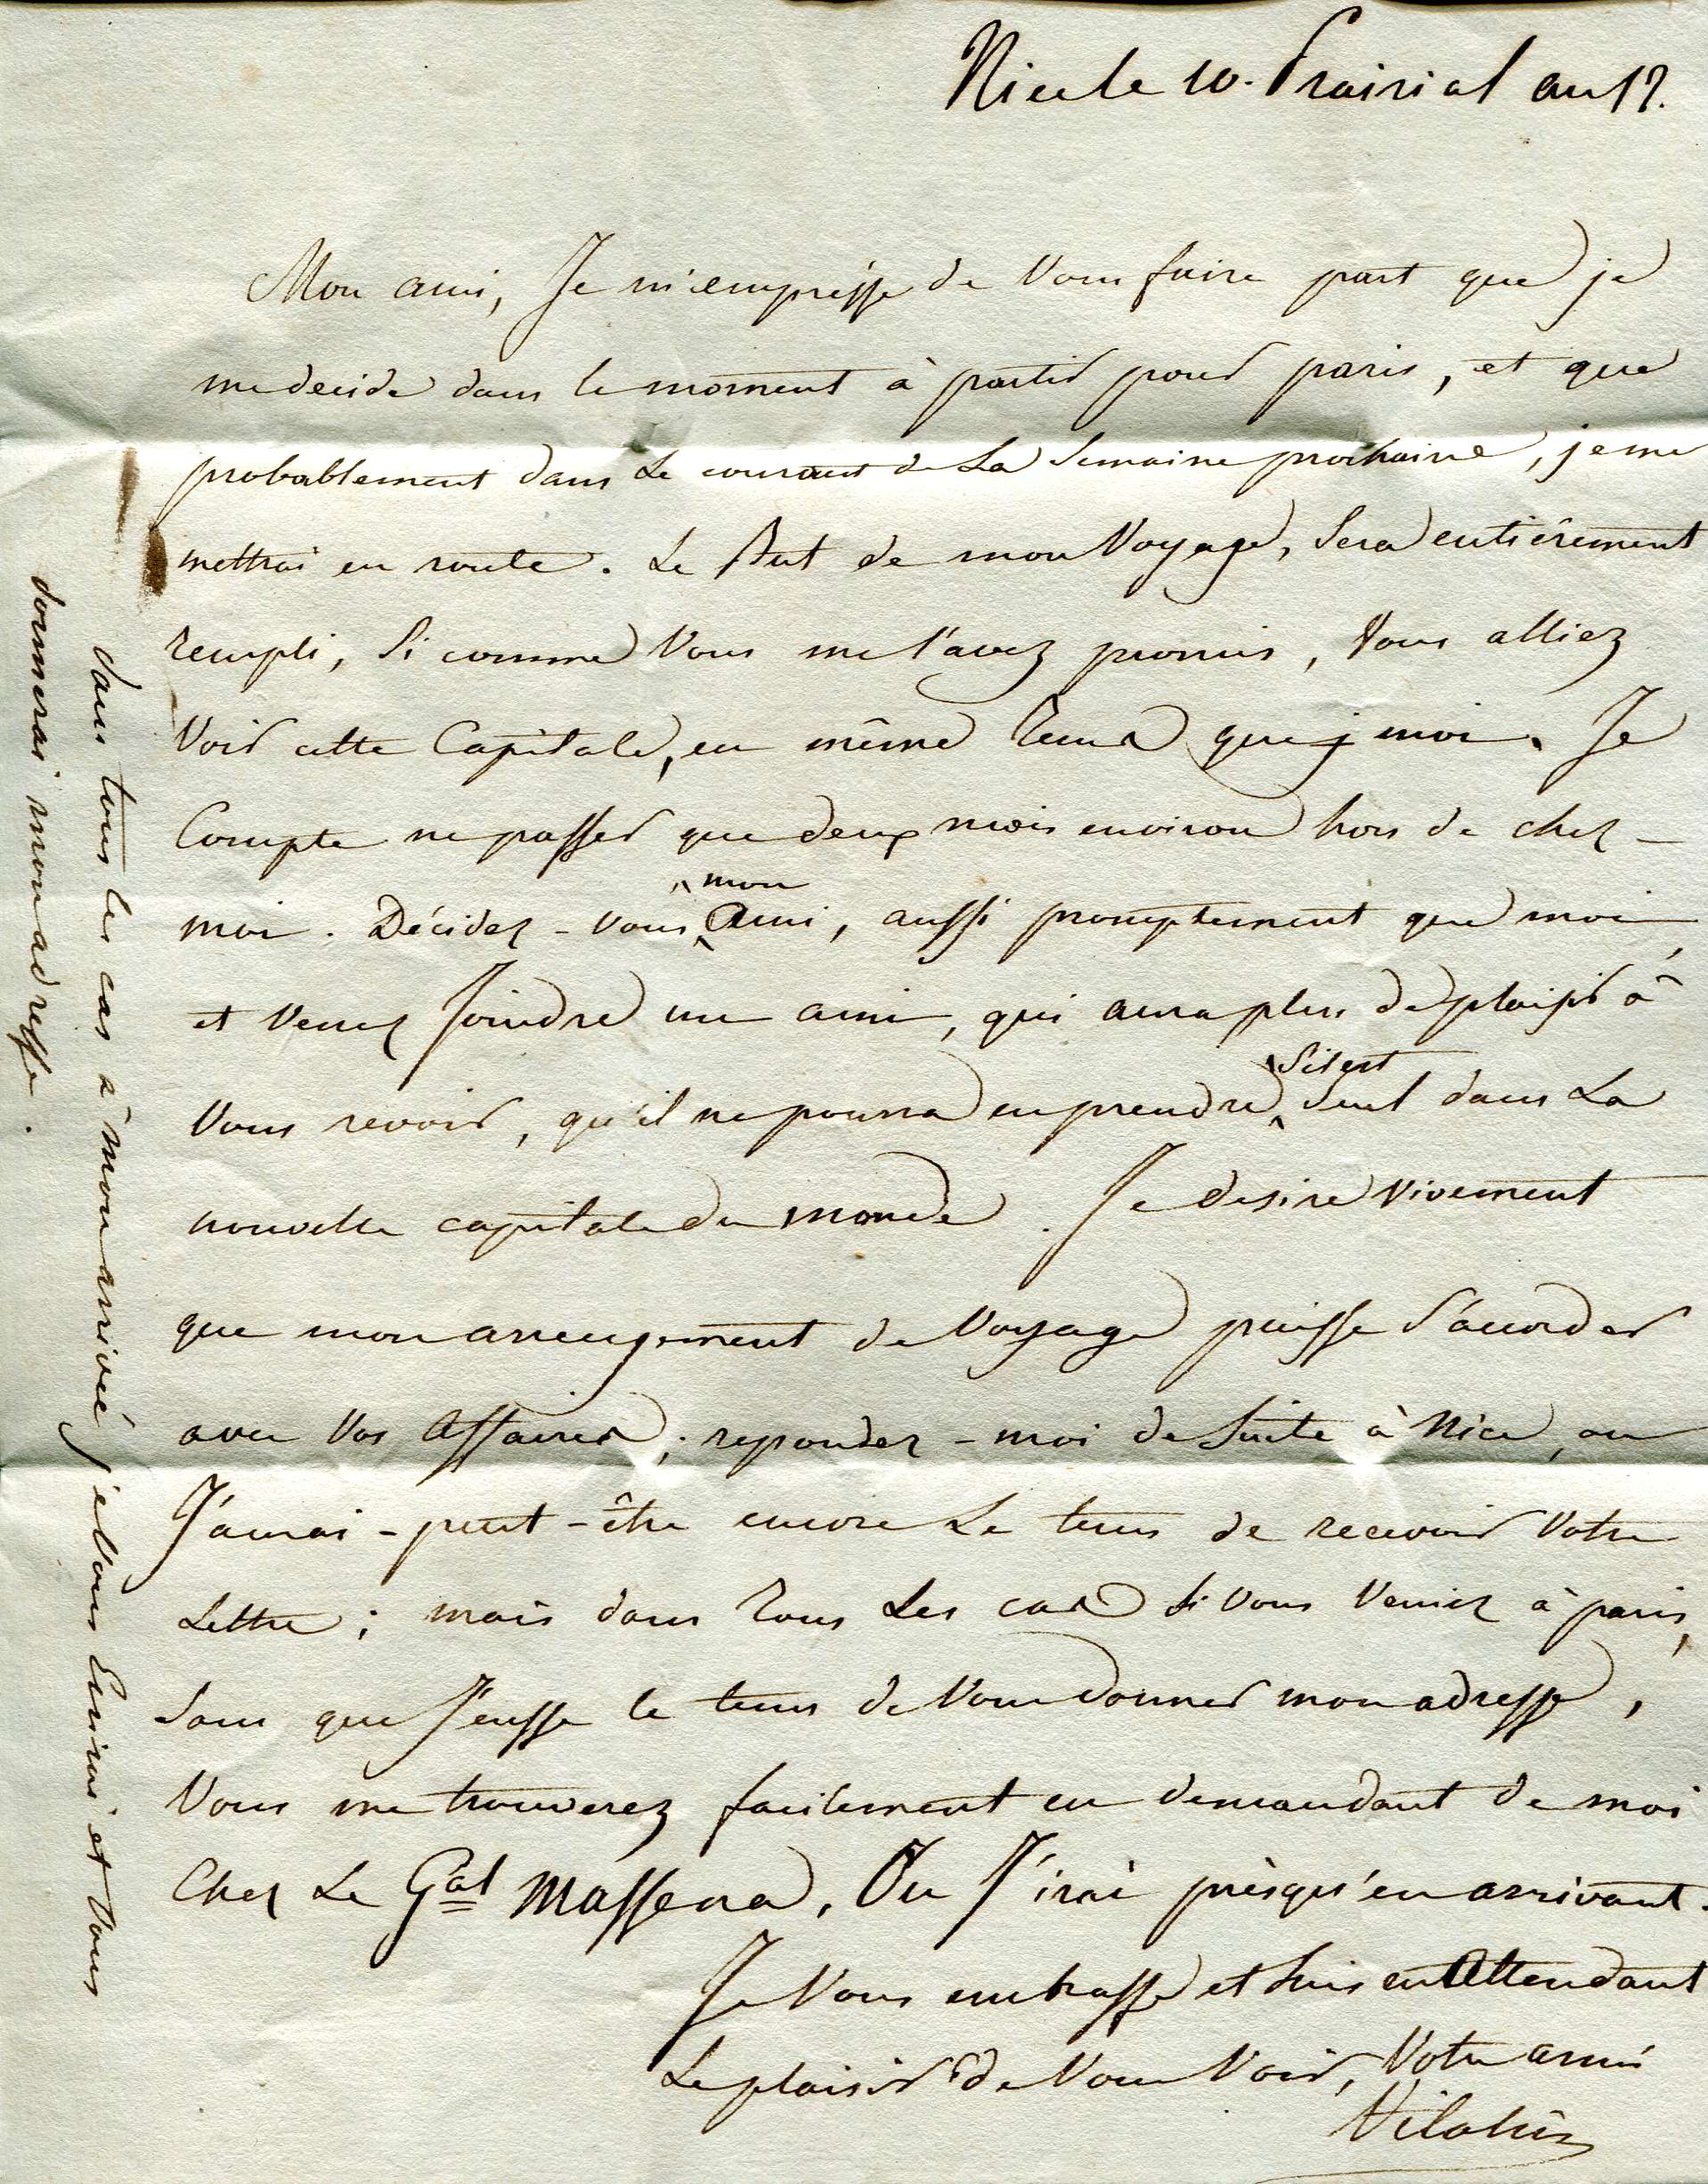 Nice le 10. Prairial an 12.
Mon ami, Je m'empresse de Vous faire part que je
me decide dans le moment à partir pour paris, et que
probablement dans Le courant de La Semaine prochaine, je me
mettrai en route. Le But de mon Voyage, Sera entièrement
rempli, Si comme Vous me l'avez promis, Vous alliez
Voir cette Capitale, en même Tems que moi. Je
Compte ne passer que deux mois environ hors de chez-
moi. Décidez-Vous mon Ami, aussi promptement que moi,
et Venez Joindre un ami, qui aura plus de plaisir à
Vous revoir, qu'il ne pourra en prendre, S'il est Seul dans La
nouvelle capitale du monde. Je desire vivement
que mon arrengement de Voyage puisse S'accorder
avec Vos Affaires; repondez-moi de Suite à Nice, ou
J'aurai-peut-être encore Le tems de recevoir Votre
Lettre; mais dans Tous Les cas Si Vous Veniez à paris,
Sans que J'eusse le tems de Vous donner mon adresse,
Vous me trouverez facilement en demandant de moi
Chez Le Gal Massena, Ou J'irai prèsqu'en arrivant.
Je Vous embrasse et Suis en Attendant
Le plaisir de Vous Voir, Votre ami
dans tous les cas à mon arrivée je Vous Ecrirai et Vous
donnerai mon adresse.